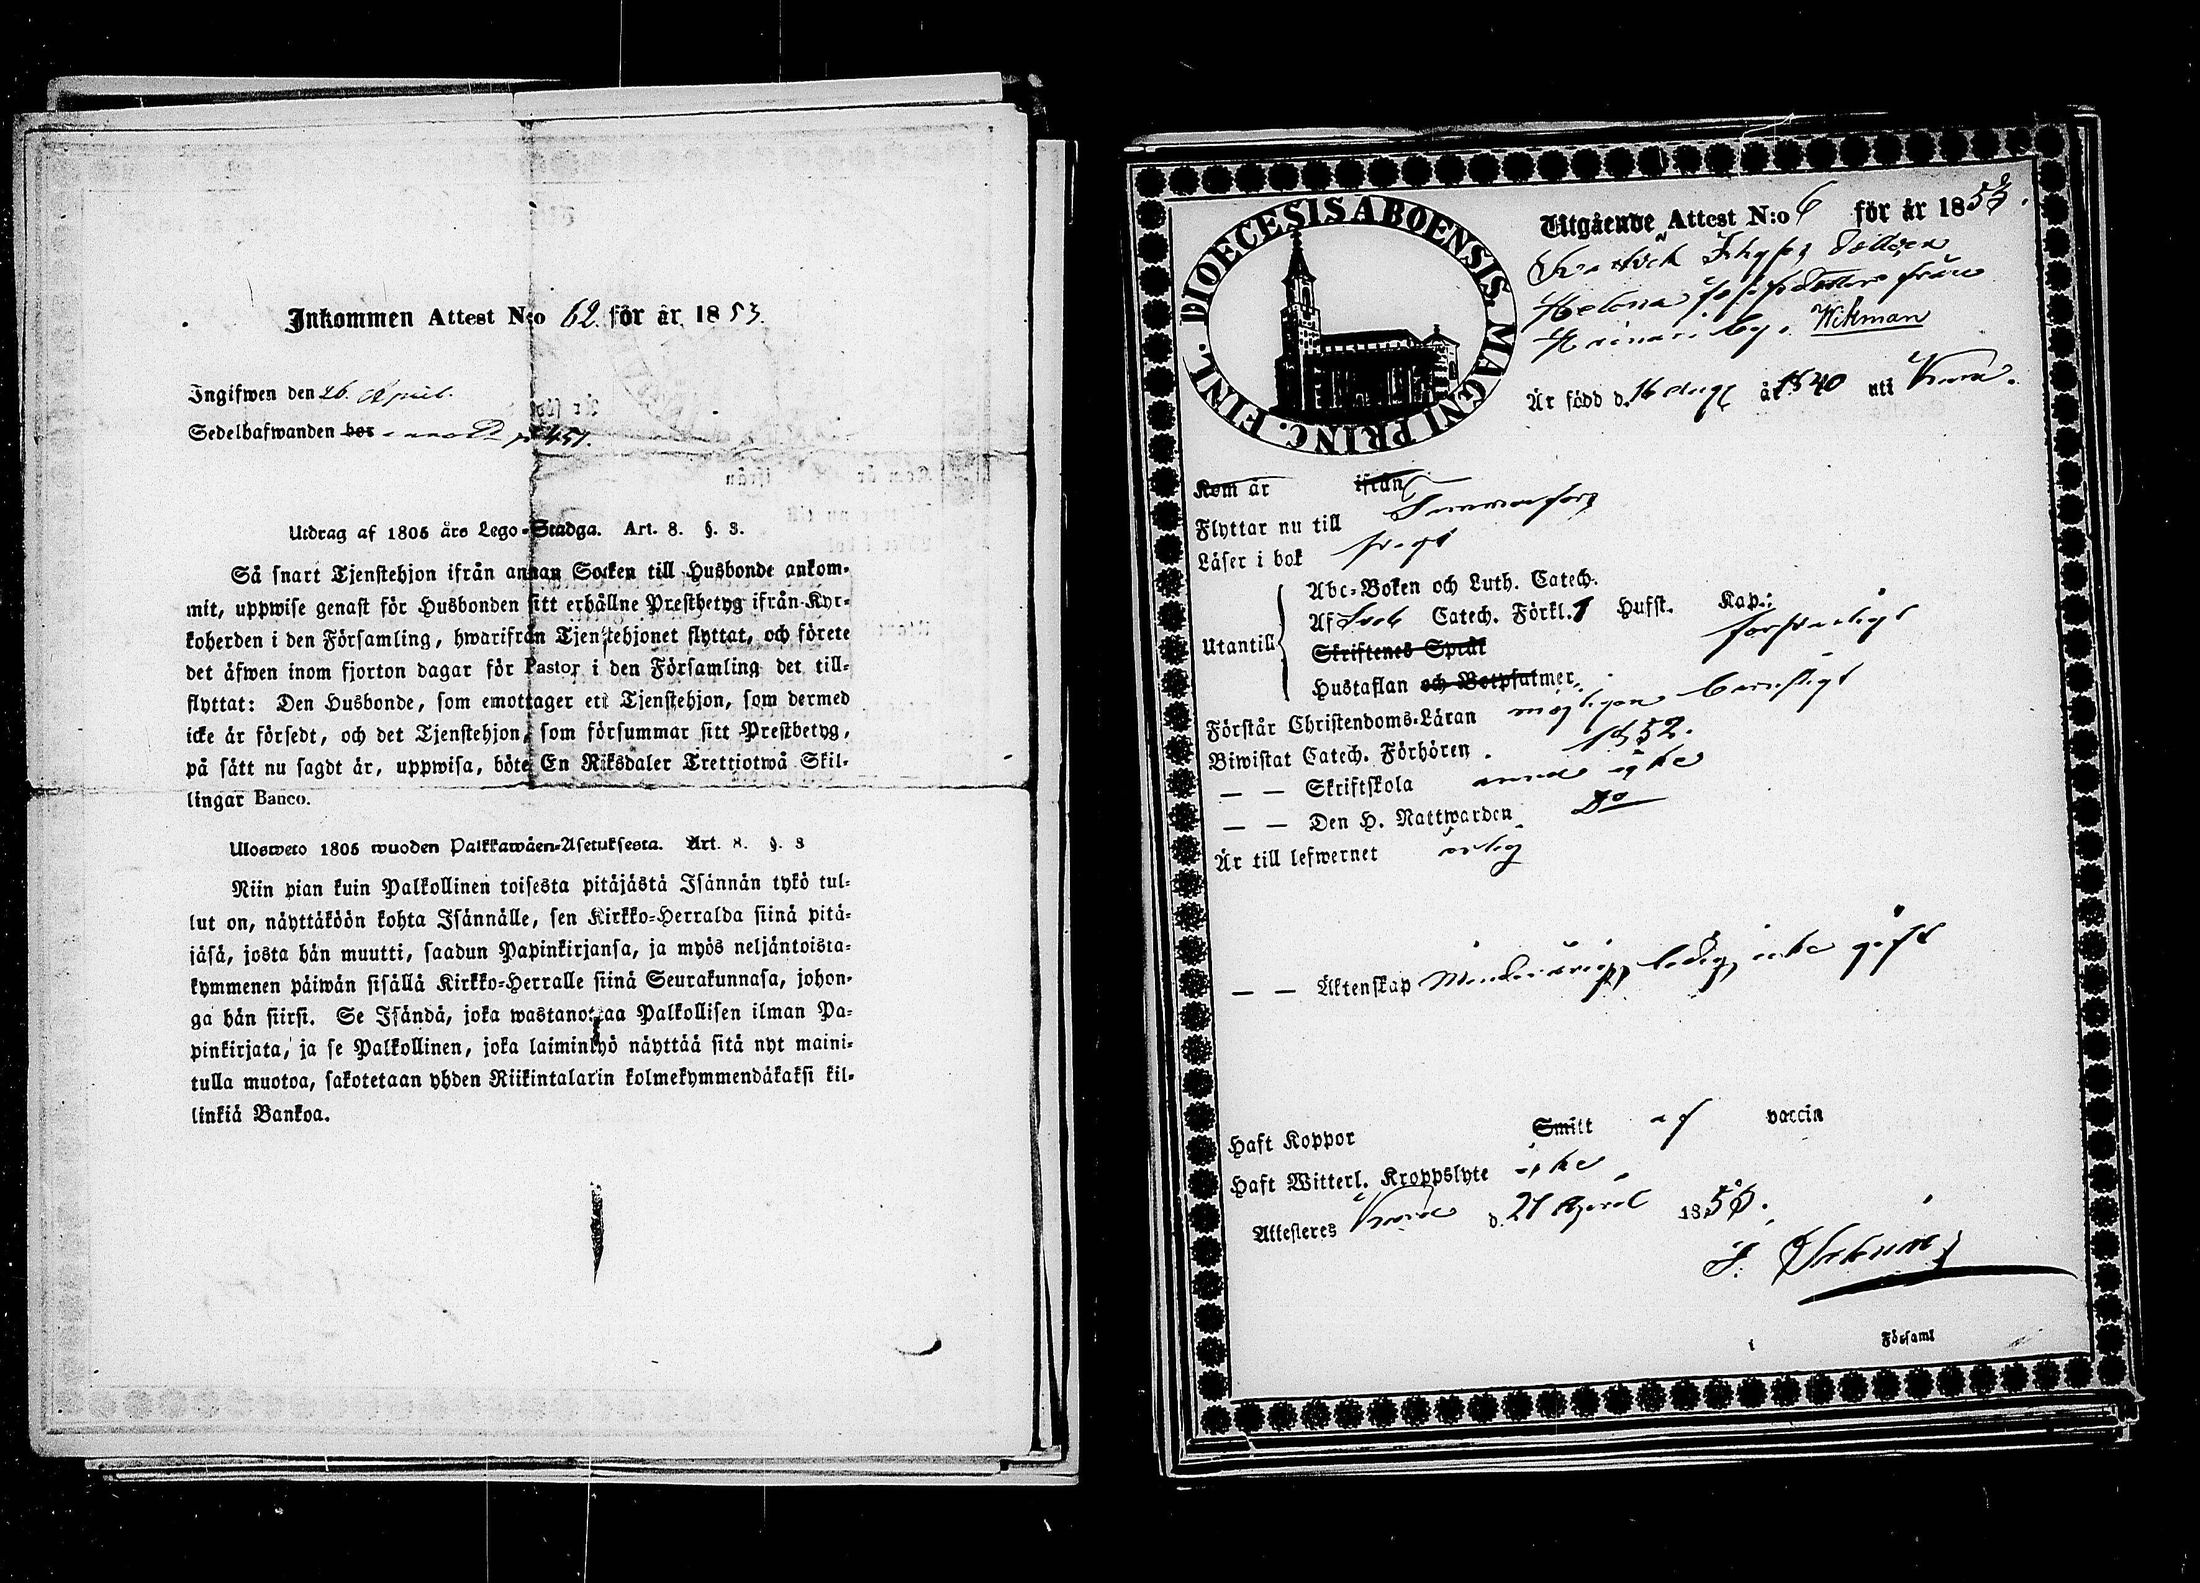 Inkommen Attest N:o 62 för år 1853.
Ingifwen den 26. April.
Sedelhafwanden bor p 451.
Utdrag af 1805 års Lego-Stadga. Art. 8. §. 3.
Så snart Tjenstehjon ifrån annan Socken till Husbonde ankom-
mit, uppwise genast för Husbonden sitt erhållne Prestbetyg ifrån Kyr-
koherden i den Församling, hwarifrån Tjenstehjonet flyttat, och förete
det äfwen inom fjorton dagar för Pastor i den Församling det till-
flyttat: Den Husbonde, som emottager ett Tjenstehjon, som dermed
icke är försedt, och det Tjenstehjon, som försummar sitt Prestbetyg,
på sätt nu sagdt är, uppwisa, böte En Riksdaler Trettiotwå Skil-
lingar Banco.
Ulosweto 1805 wuoden Palkkawäen-Asetuksesta. Art. 8. §. 3
Niin pian kuin Palkollinen toisesta pitäjästä Isännän tykö tul-
lut on, näyttäköön kohta Isännälle, sen Kirkko-Herralda siinä pitä-
jäsä, josta hän muutti, saadun Papinkirjansa, ja myös neljäntoista-
kymmenen päiwän sisällä Kirkko-Herralle siinä Seurakunnasa, johon-
ga hän siirsi. Se Isändä, joka wastanottaa Palkollisen ilman Pa-
pinkirjata, ja se Palkollinen, joka laiminlyö näyttää sitä nyt maini-
tulla muotoa, sakotetaan yhden Riikintalarin kolmekymmendäkaksi kil-
linkiä Bankoa.
DIOECESIS ABOENSIS. MAGNI PRINC. FINL.
Utgående Attest N:o 6 för år 1853.
Helena Josefsdotter från
by. Wikman
Är född d. 16 Aug år 1840 uti Kuru.
Kom år ifrån
Flyttar nu till Tammerfors
Läser i bok
Abc-Boken och Luth. Catech.
Utantill Af Sveb Catech. Förkl. 1 Hufst. Kap.:
Skriftenes Språk försvarligt
Hustaflan och Botpsalmer
Förstår Christendoms-Läran möjligen barnsligt
Biwistat Catech. Förhören 1852.
— — Skriftskola ännu icke
— — Den H. Nattwarden Do
Är till lefwernet ärlig
— — Äktenskap Minderårig, ledig, icke gift
Haft Koppor Smitt af vaccin
Haft Witterl. Kroppslyte icke
Attesteres Kuru d. 21 April 1853.
Församl